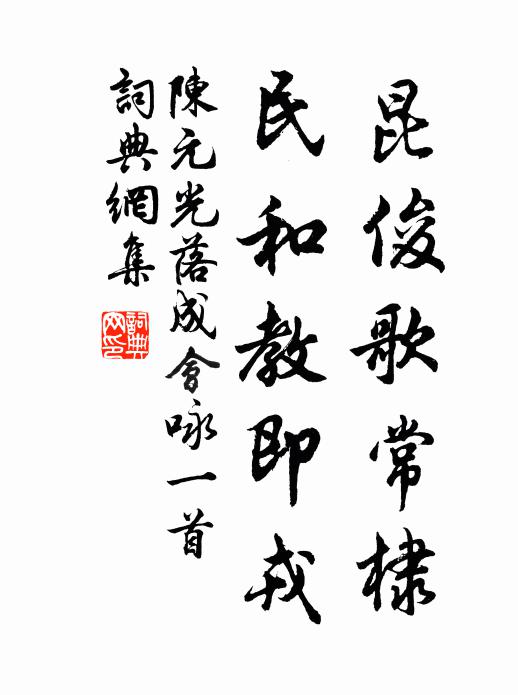 昆俊歌常棣
民和教即戎
陳元光落成會咏一首
詞典網集
詞典网印